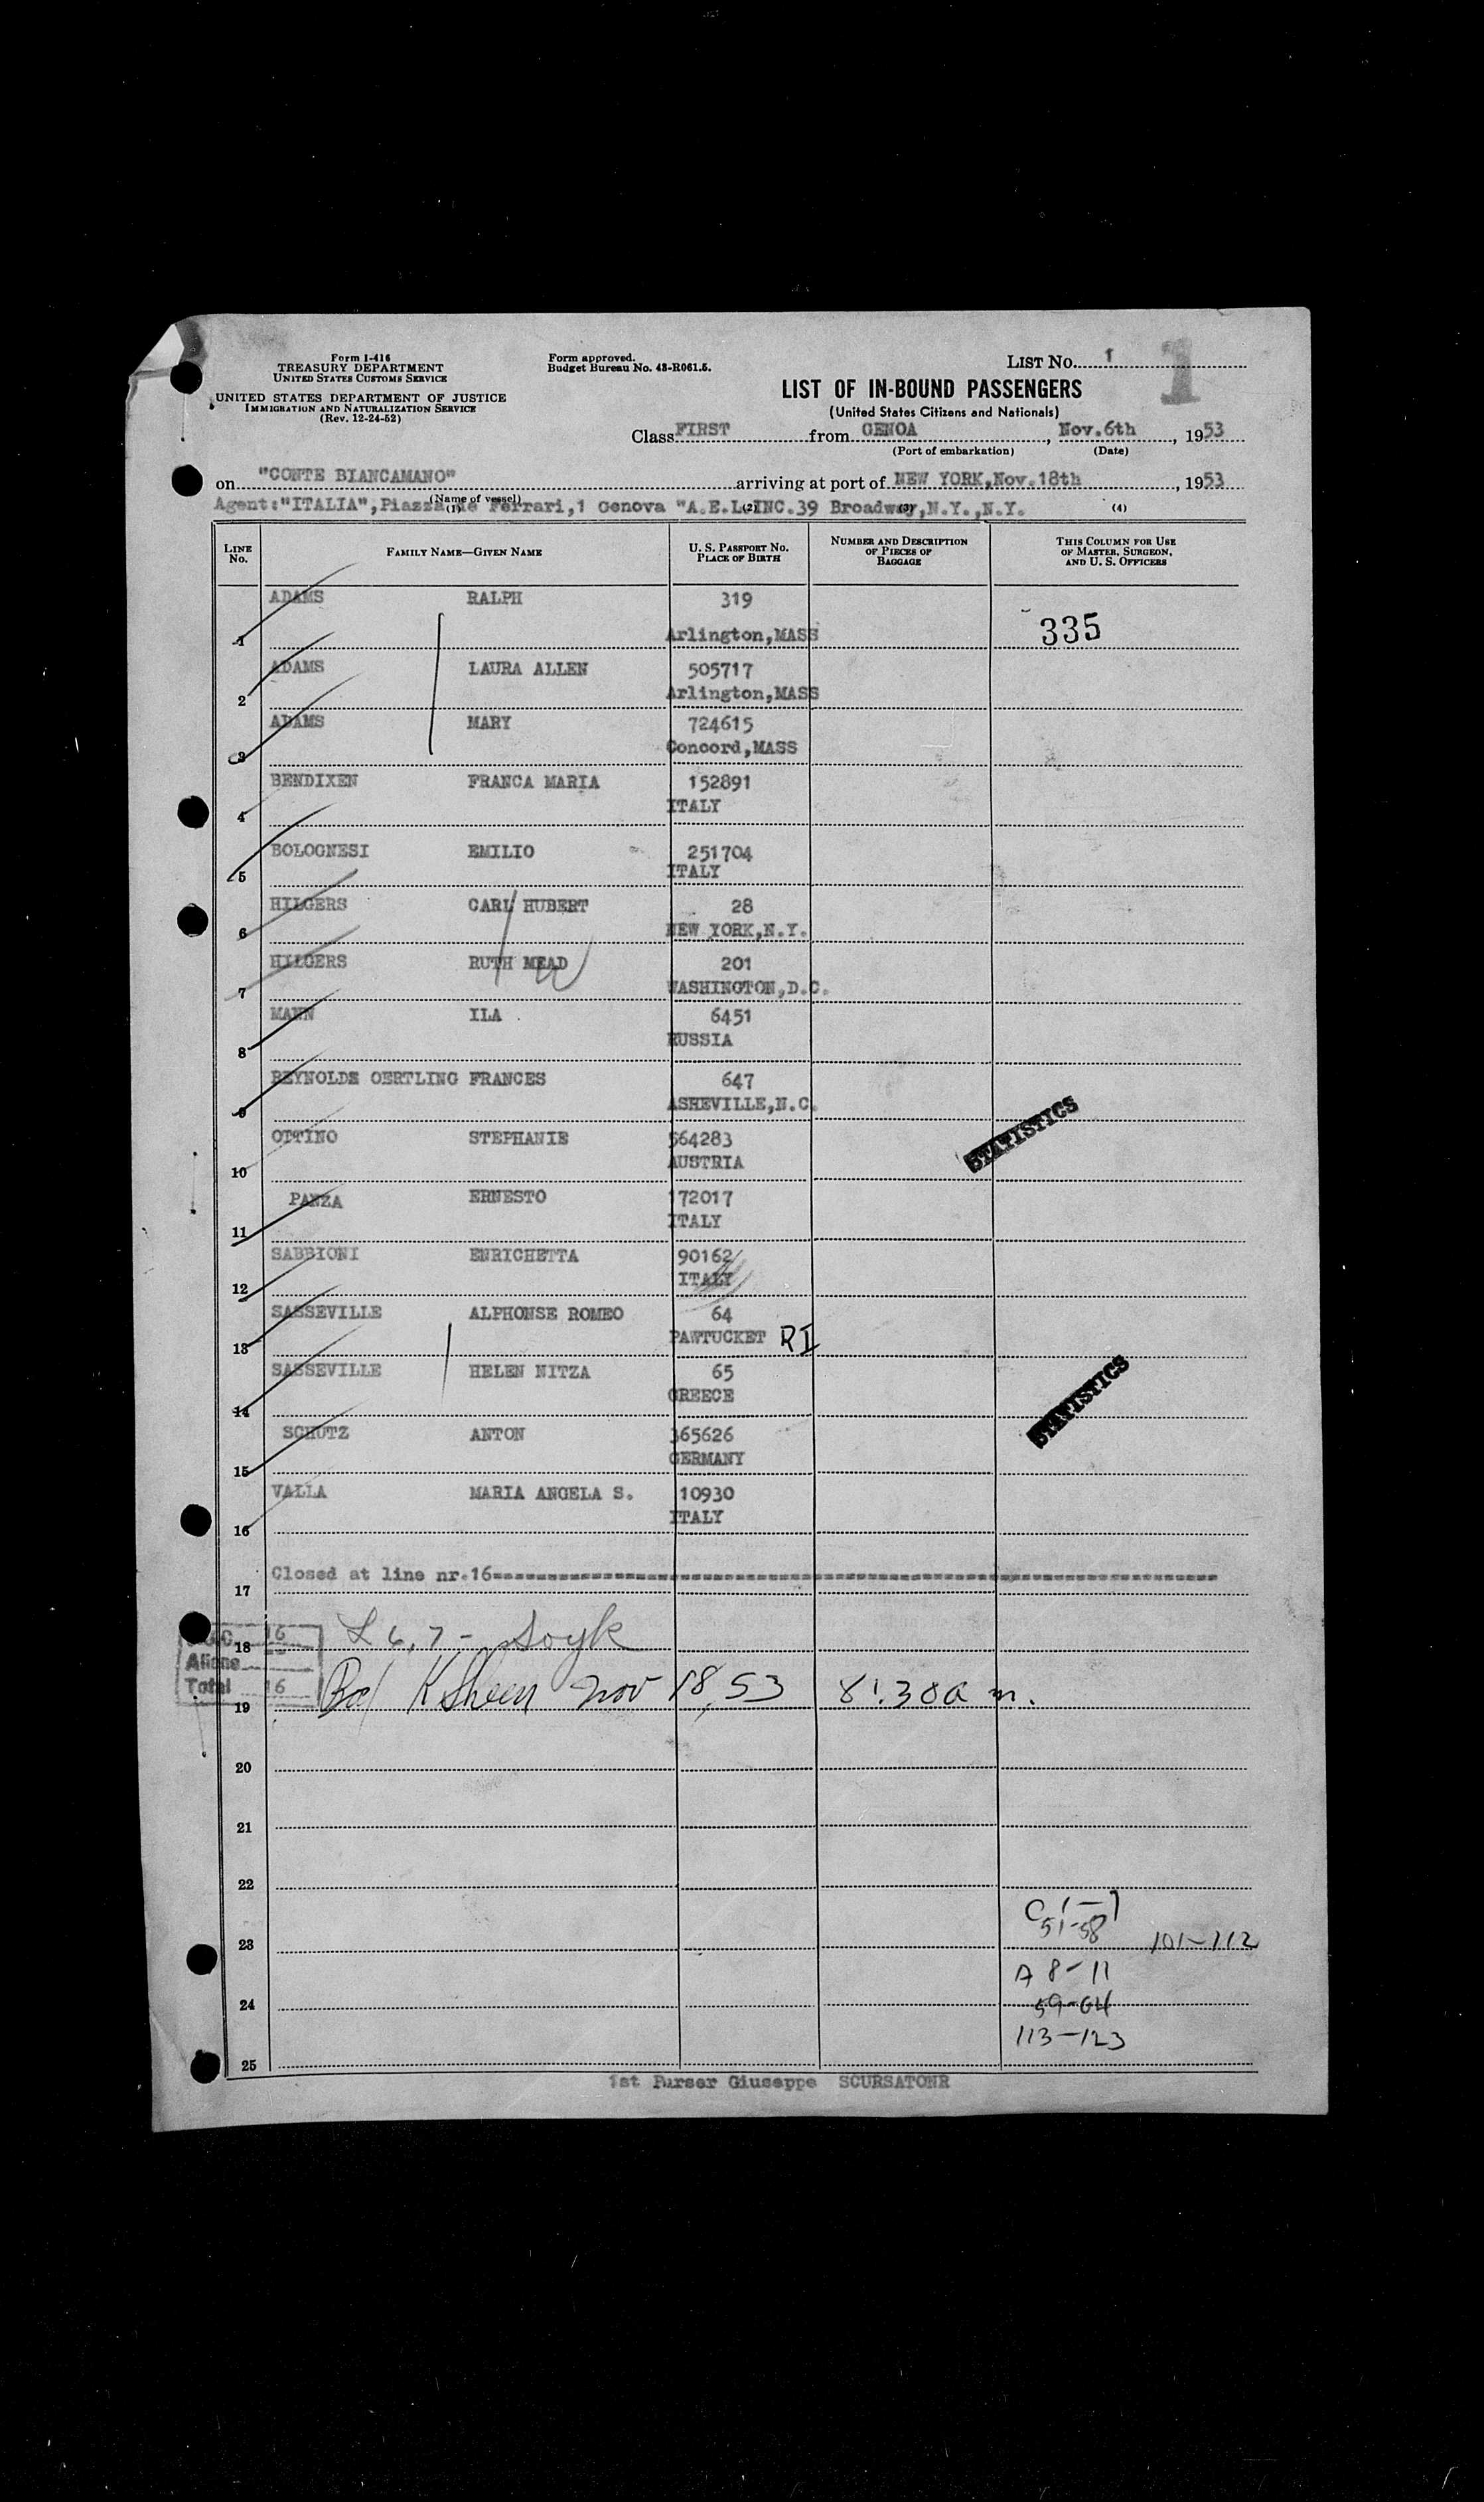 Form I-416
TREASURY DEPARTMENT
UNITED STATES CUSTOMS SERVICE
UNITED STATES DEPARTMENT OF JUSTICE
IMMIGRATION AND NATURALIZATION SERVICE
(Rev. 12-24-52)
Form approved.
Budget Bureau No. 43-R061.5.
LIST NO. 1
1
LIST OF IN-BOUND PASSENGERS
(United States Citizens and Nationals)
Class FIRST from GENOA, Nov.6th, 1953
(Port of embarkation) (Date)
on "CONTE BIANCAMANO" arriving at port of NEW YORK,Nov.18th, 1953
(Name of vessel)
Agent:"ITALIA",Piazza de Ferrari,1 Genova "A.E.L.INC.39 Broadway,N.Y.,N.Y.
(1) (2) (3) (4)
LINE NO. FAMILY NAME—GIVEN NAME U. S. PASSPORT NO. PLACE OF BIRTH NUMBER AND DESCRIPTION OF PIECES OF BAGGAGE THIS COLUMN FOR USE OF MASTER, SURGEON, AND U. S. OFFICERS
ADAMS RALPH 319
1 Arlington,MASS 335
ADAMS LAURA ALLEN 505717
2 Arlington,MASS
ADAMS MARY 724615
3 Concord,MASS
BENDIXEN FRANCA MARIA 152891
4 ITALY
BOLOGNESI EMILIO 251704
5 ITALY
HILGERS CARL HUBERT 28
6 NEW YORK,N.Y.
HILGERS RUTH MEAD 201
7 WASHINGTON,D.C.
MANN ILA 6451
8 RUSSIA
REYNOLDS OERTLING FRANCES 647
9 ASHEVILLE,N.C.
OTTINO STEPHANIE 564283
10 AUSTRIA
STATISTICS
PANZA ERNESTO 172017
11 ITALY
SABBIONI ENRICHETTA 90162
12 ITALY
SASSEVILLE ALPHONSE ROMEO 64
13 PAWTUCKET RI
SASSEVILLE HELEN NITZA 65
14 GREECE
STATISTICS
SCHUTZ ANTON 365626
15 GERMANY
VALLA MARIA ANGELA S. 10930
16 ITALY
17 Closed at line nr.16
18 L 6,7 -
16
Aliens
Total 16
19 Nov 18, 53 8:30 a m.
20
21
22
C 1-7
51-58
23 101-112
A 8-11
24 59-64
113-123
25
1st Purser Giuseppe SCURSATONR